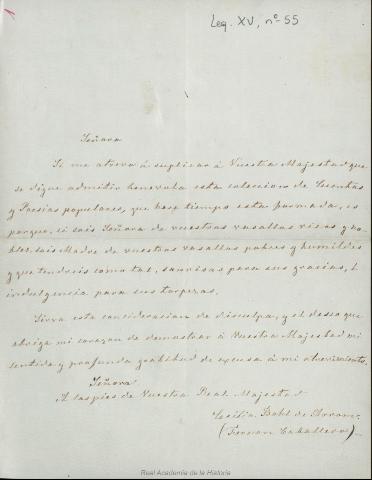 Leg. XV, nº 55
Señora
Si me atrevo á suplicar á Vuestra Majestad que
se digne admitir benevola esta coleccion de Cuentos
y Poesias populares, que hace tiempo esta formada, es
porque, si sois Señora de vuestros vasallos ricos y no-
bles, sois Madre de vuestros vasallos pobres y humildes
y que tendreis como tal, sonrisas para sus gracias, é
indulgencia para sus torpezas.
Sirva esta consideracion de disculpa, y el deseo que
abriga mi corazon de demostrar á Vuestra Majestad mi
sentida y profunda gratitud de excusa á mi atrevimiento.
Señora
A los pies de Vuestra Real Majestad
Cecilia Bohl de Arrom
(Fernan Caballero)
Real Academia de la Historia